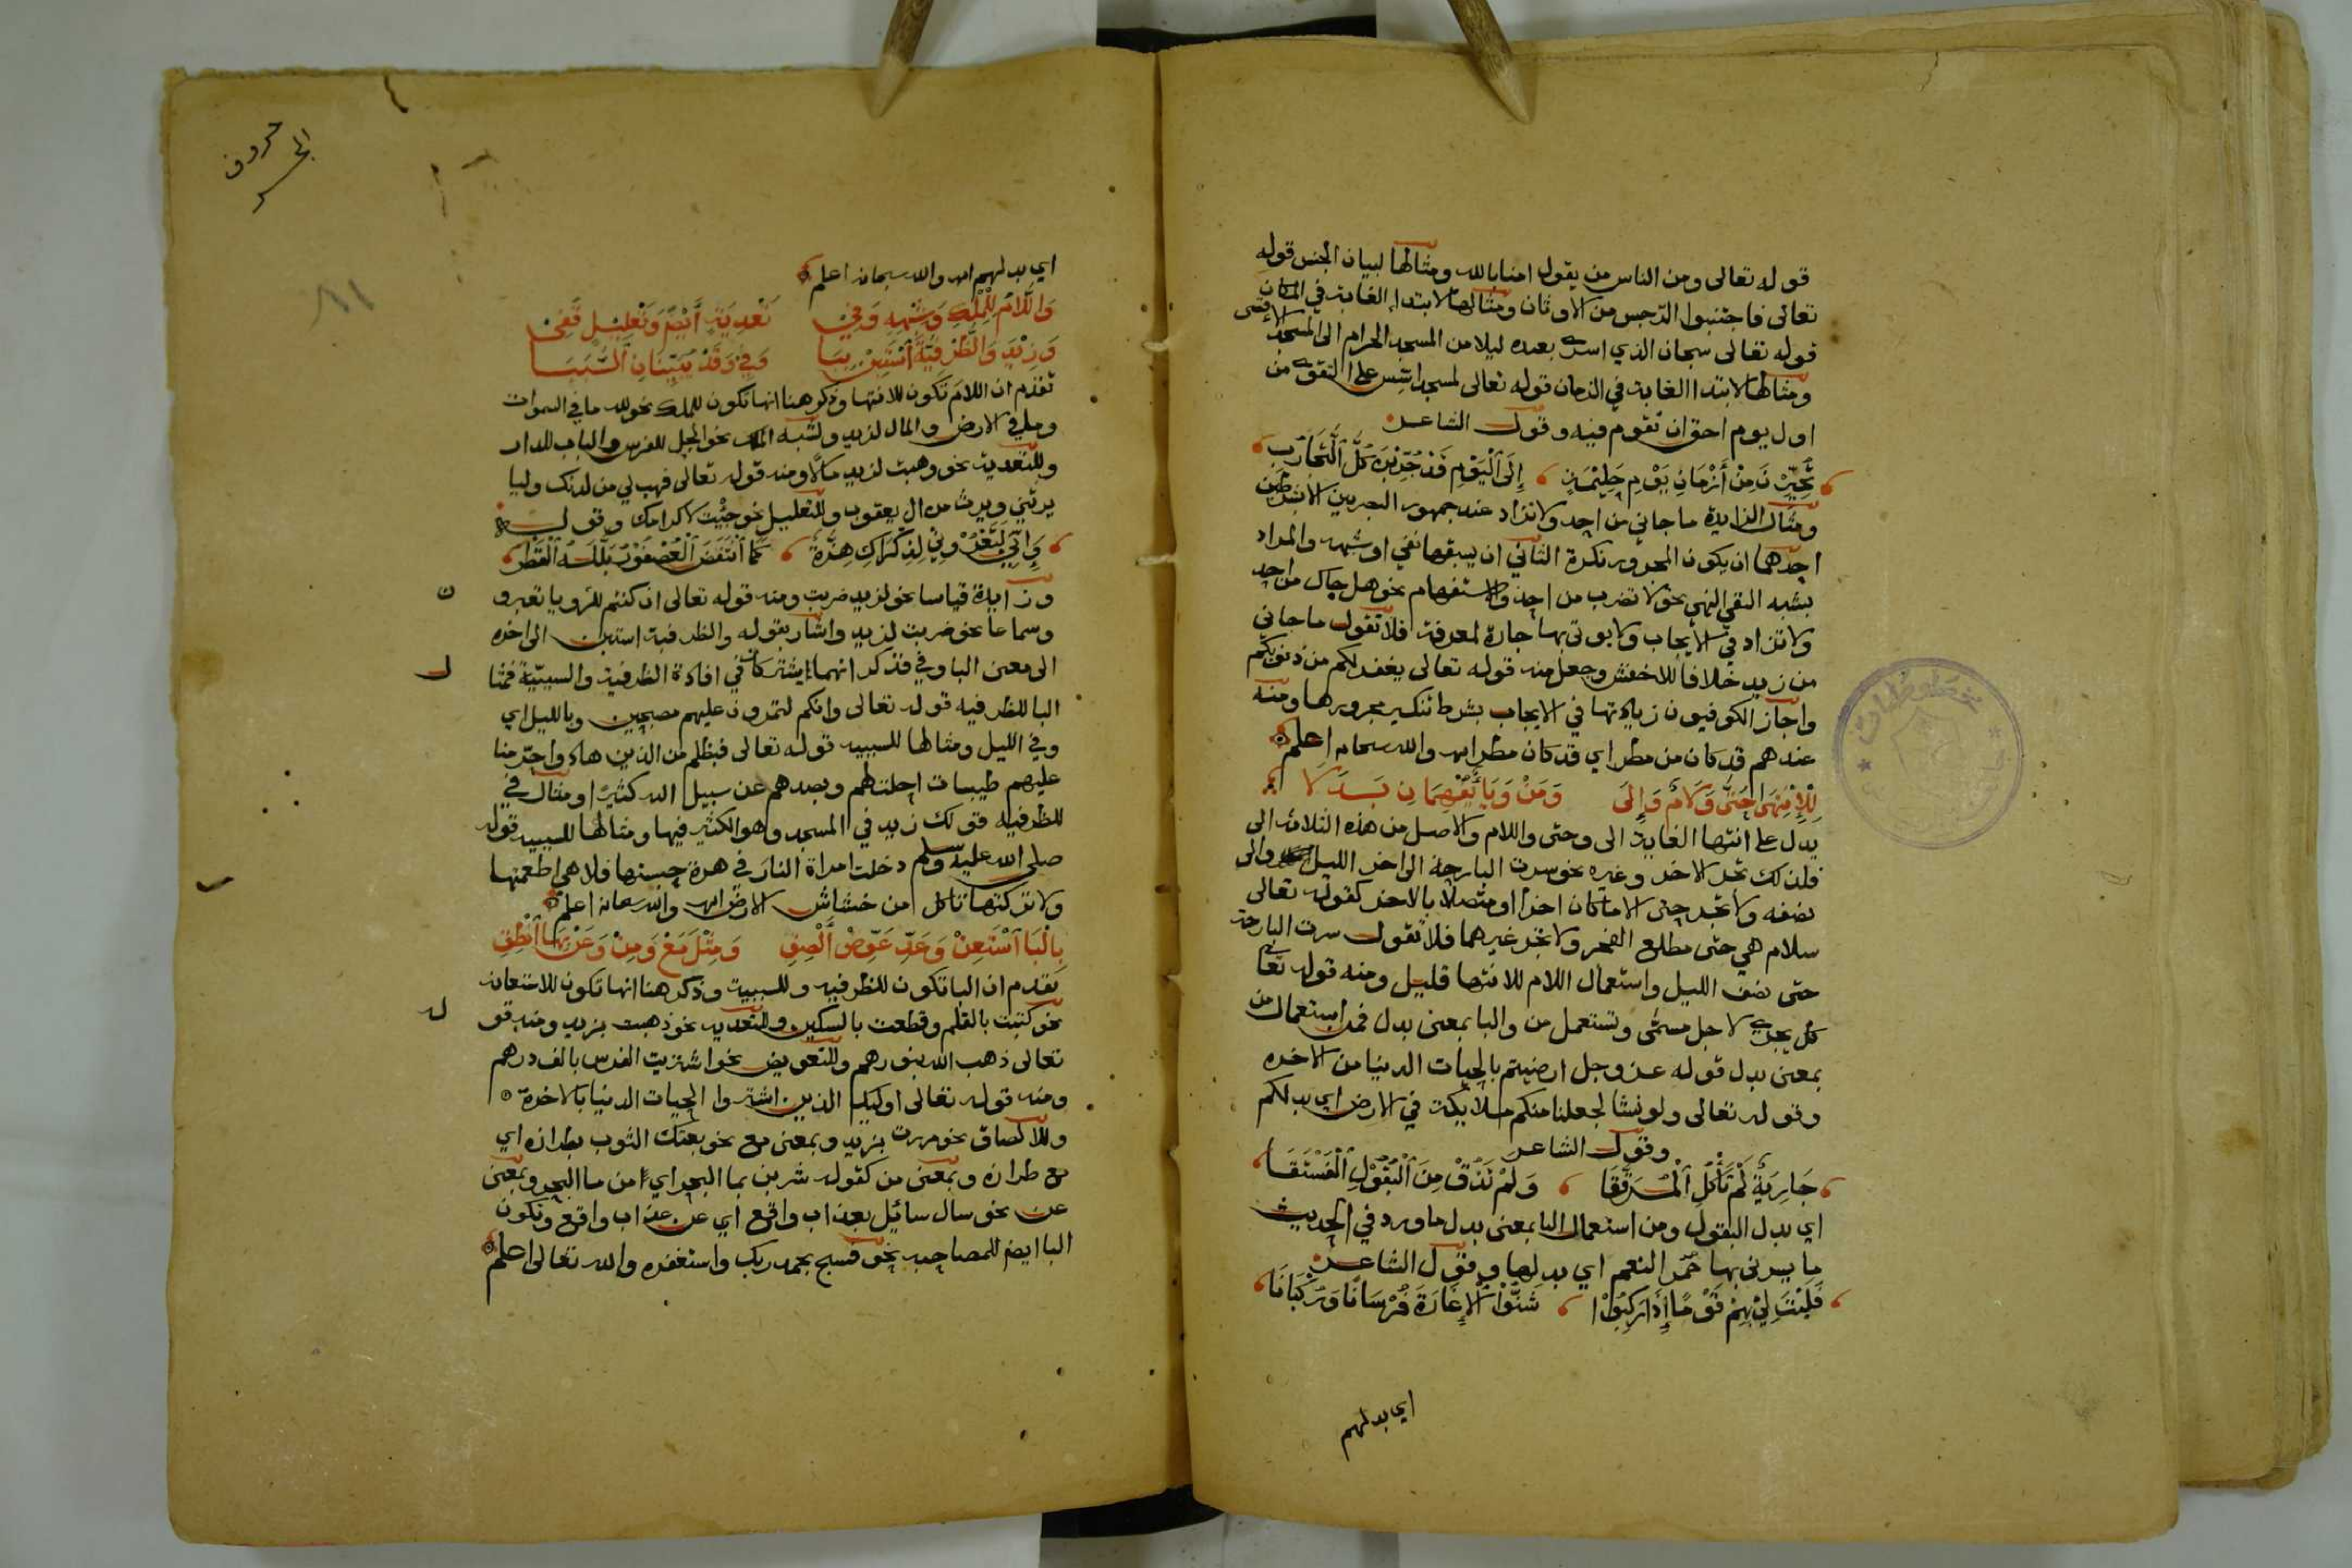 قوله تعالى ومن الناس من يقول امنا بالله ومثالها لبيان الجنس قوله
تعالى فاجتنبوا الرجس من الاوثان ومثالها لابتدا الغاية في المكان
قوله تعالى سبحان الذي اسرى بعبده ليلا من المسجد الحرام الى المسجد الاقصى
ومثالها لابتدا الغاية في الزمان قوله تعالى لمسجد اسس على التقوى من
اول يوم احق ان تقوم فيه وقول الشاعر
تُخُيِّرْنَ مِنْ أَزْمَانِ يَوْمِ حَلِيْمَةٍ إِلَى ٱلْيَوْمِ قَدْ جُرِّبْنَ كُلَّ ٱلتَّجَارِبِ
ومثال الزايدة ما جاني من احد ولا تزاد عند جمهور البصريين الا بشرطين
احدهما ان يكون المجرور نكرة الثاني ان يسبقها نفي او شبهه والمراد
بشبه النفي النهي نحو لا تضرب من احد والاستفهام نحو هل جاك من احد
ولا تزاد في الايجاب ولا يوتى بها جارة لمعرفة فلا تقول ما جاني
من زيد خلافا للاخفش وجعل منه قوله تعالى يغفر لكم من ذنوبكم
واجاز الكوفيون زيادتها في الايجاب بشرط تنكير مجرورها ومنه
عندهم قد كان من مطر اي قد كان مطر اهـ والله سبحانه اعلم
لِلْاِنْتِهَا حَتَّى وَلَامٌ وَإِلَى وَمِنْ وَبَا يُفْهِمَانِ بَدَلَا
يدل على انتها الغاية الى وحتى واللام والاصل من هذه الثلاثة الى
فلذلك تجر الاخر وغيره نحو سرت البارحة الى اخر الليل والى
نصفه ولا تجر حتى الا ما كان اخرا او متصلا بالاخر كقوله تعالى
سلام هي حتى مطلع الفجر ولا تجر غيرهما فلا تقول سرت البارحة
حتى نصف الليل واستعمال اللام للانتها قليل ومنه قوله تعالى
كل يجري لاجل مسمى وتستعمل من والبا بمعنى بدل فمن استعمال من
بمعنى بدل قوله عز وجل ارضيتم بالحيات الدنيا من الاخره
وقوله تعالى ولو نشا لجعلنا منكم ملايكة في الارض اي بدلكم
وقول الشاعر
جَارِيَةٌ لَمْ تَأْكُلِ ٱلْمُرَقَّقَا وَلَمْ تَذُقْ مِنَ ٱلْبُقُوْلِ ٱلْفُسْتُقَا
اي بدل البقول ومن استعمال البا بمعنى بدل ما ورد في الحديث
ما يسرني بها حُمْر النعم اي بدلها وقول الشاعر
فَلَيْتَ لِيْ بِهِمْ قَوْمًا إِذَا رَكِبُوْا شَنُّوْا ٱلْإِغَارَةَ فُرْسَانًا وَرُكْبَانَا
اي بدلهم
حروف
الجر
٨١
اي بدلهم اهـ والله سبحانه اعلم
وَاللَّامُ لِلْمِلْكِ وَشِبْهِهِ وَفِيْ تَعْدِيَةٍ أَيْضًا وَتَعْلِيْلٍ قُفِيْ
وَزِيْدَ وَالظَّرْفِيَّةَ ٱسْتَبِنْ بِبَا وَفِيْ وَقَدْ يُبَيِّنَانِ ٱلسَّبَبَا
تقدم ان اللام تكون للانتها وذكر هنا انها تكون للملك نحو لله ما في السموات
وما في الارض والمال لزيد ولشبه الملك نحو الجل للفرس والباب للدار
وللتعدية نحو وهبت لزيد مالا ومنه قوله تعالى فهب لي من لدنك وليا
يرثني ويرث من ال يعقوب وللتعليل نحو جئت لاكرامك وقوله
وَإِنِّي لَتَعْرُوْنِيْ لِذِكْرَاكِ هِزَّةٌ كَمَا ٱنْتَفَضَ ٱلْعُصْفُوْرُ بَلَّلَهُ ٱلْقَطْرُ
وزايدة قياسا نحو لزيد ضربت ومنه قوله تعالى ان كنتم للرويا تعبرو ن
وسماعا نحو ضربت لزيد واشار بقوله والظرفية استبن الى اخره
الى معنى البا وفي فذكر انهما يشتركان في افادة الظرفية والسببية فمثا ل
البا للظرفيه قوله تعالى وانكم لتمرون عليهم مصبحين وبالليل اي
وفي الليل ومثالها للسببيه قوله تعالى فبظلم من الذين هادوا حرمنا
عليهم طيبات احلت لهم وبصدهم عن سبيل الله كثيرا ومثال في
للظرفيه قولك زيد في المسجد وهو الكثير فيها ومثالها للسببيه قوله
صلى الله عليه وسلم دخلت امراة النار في هرة حبستها فلا هي اطعمتها
ولا تركتها تاكل من خشاش الارض اهـ والله سبحانه اعلم
بِالْبَا ٱسْتَعِنْ وَعَدِّ عَوِّضْ أَلْصِقِ وَمِثْلَ مَعْ وَمِنْ وَعَنْ بِهَا ٱنْطِقِ
تقدم ان البا تكون للظرفيه وللسببية وذكر هنا انها تكون للاستعانه
نحو كتبت بالقلم وقطعت بالسكين وللتعديه نحو ذهبت بزيد ومنه قو له
تعالى ذهب الله بنورهم وللتعويض نحو اشتريت الفرس بالف درهم
ومنه قوله تعالى اوليك الذين اشتروا الحيات الدنيا بالاخرة
وللالصاق نحو مررت بزيد وبمعنى مع نحو بعتك الثوب بطرازه اي
مع طرازه وبمعنى من كقوله شربن بما البحر اي من ما البحر وبمعنى
عن نحو سال سائل بعذاب واقع اي عن عذاب واقع وتكون
البا ايضا للمصاحبه نحو فسبح بحمد ربك واستغفره والله تعالى اعلم